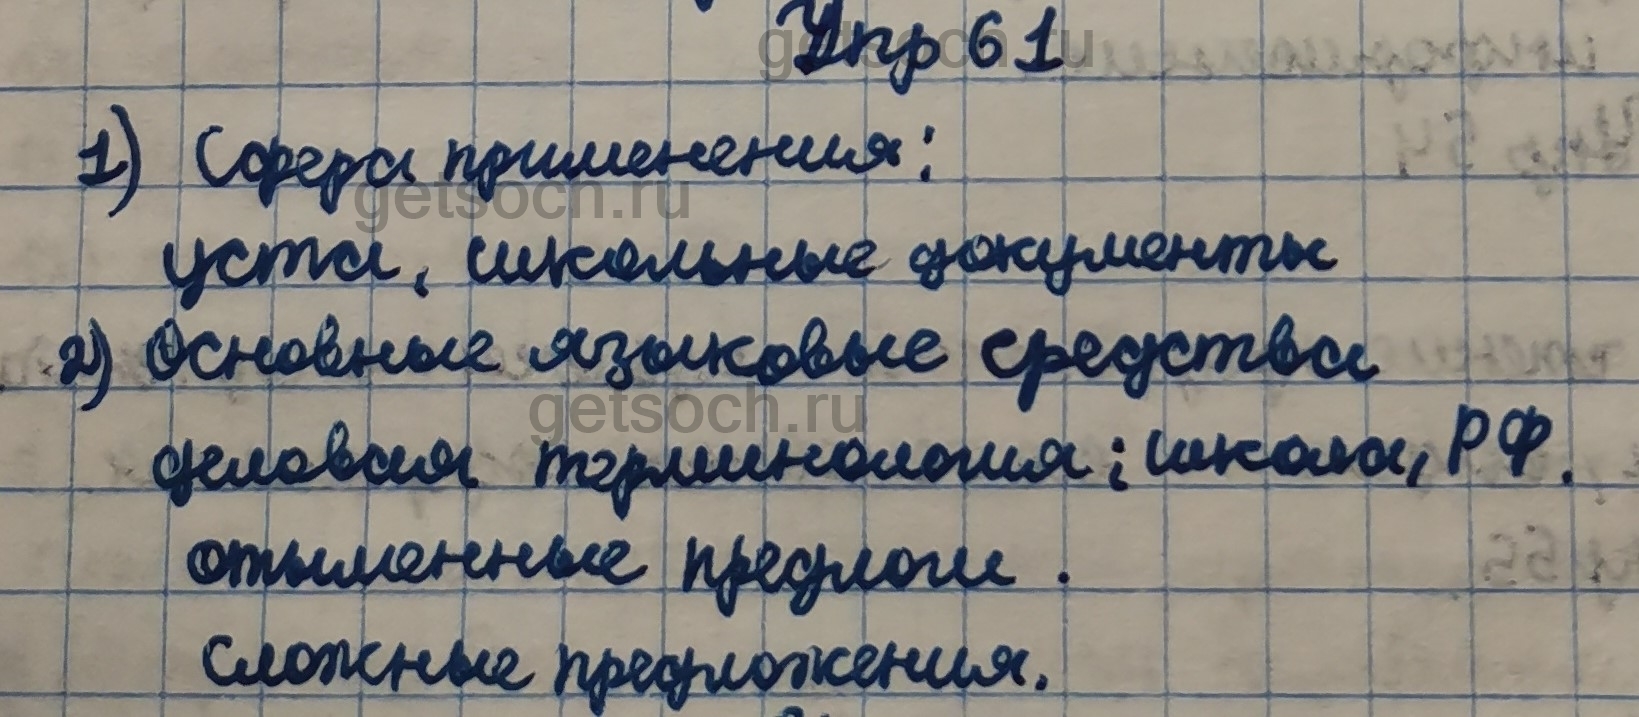 Упр 61
1) Сфера применения:
уста, школьные документы
2) Основные языковые средства
деловая терминология; школа, РФ.
отыменные предлоги.
Сложные предложения.
getsoch.ru
getsoch.ru
getsoch.ru